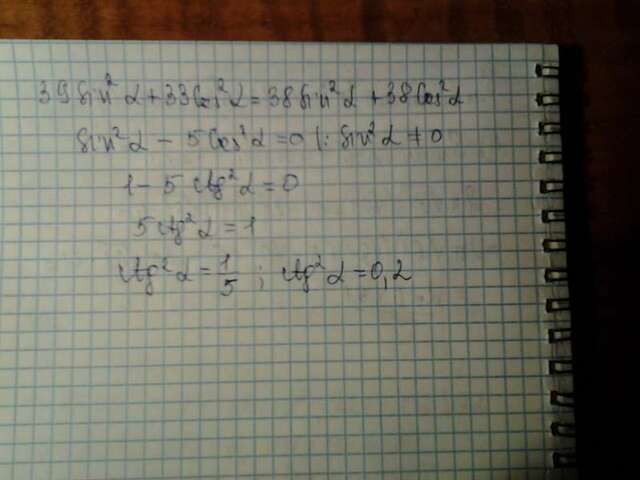 39 sin²α + 33cos²α = 38 sin²α + 38cos²α
sin²α - 5cos²α = 0 |: sin²α ≠ 0
1 - 5 ctg²α = 0
5ctg²α = 1
ctg²α = 1/5 ; ctg²α = 0,2